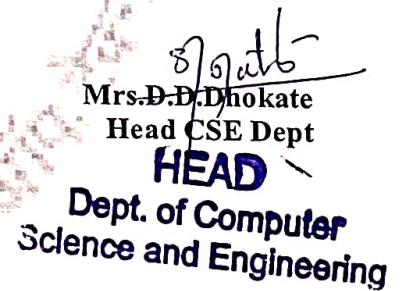 Mrs.D.D.Dhokate
Head CSE Dept
HEAD
Dept. of Computer
Science and Engineering